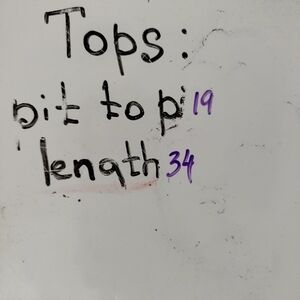 Tops:
pit to pi 19
length 34